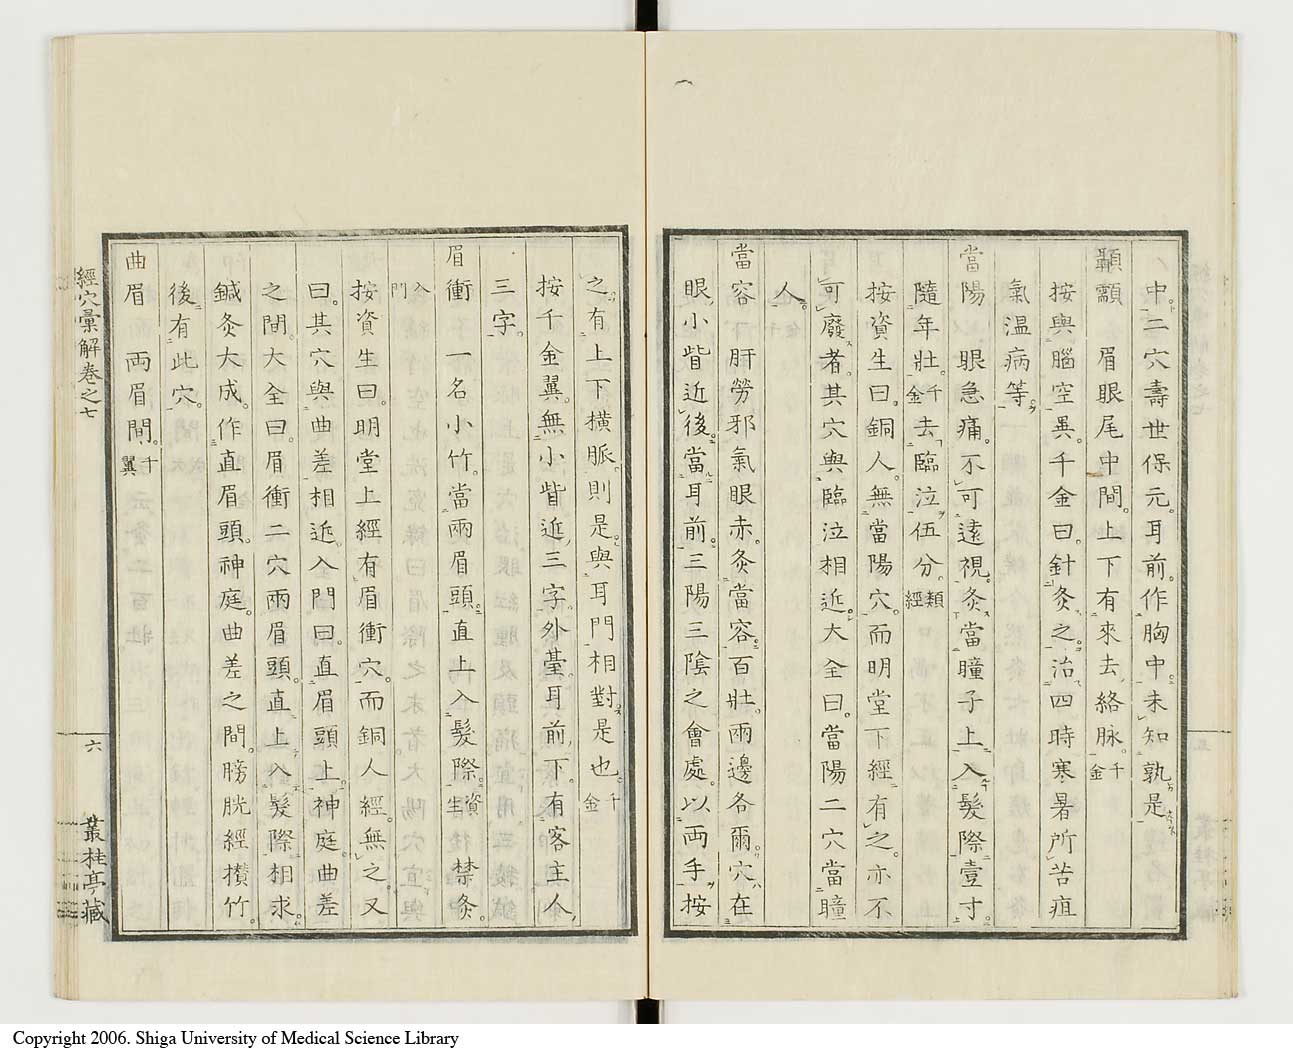 中二穴壽世保元。耳前。作胸中。未知孰是
顳顬 眉眼尾中間。上下有來去絡脉。千金
按與腦空異。千金曰。針灸之。治四時寒暑所苦疽
氣溫病等。
當陽 眼急痛。不可遠視。灸當瞳子上入髮際壹寸。
隨年壯。千金去臨泣伍分。類經
按資生曰。銅人無當陽穴。而明堂下經有之。亦不
可廢者。其穴與臨泣相近。大全曰。當陽二穴當瞳
人。
當容 肝勞邪氣眼赤。灸當容百壯。兩邊各爾。穴在
眼小眥近後。當耳前。三陽三陰之會處。以両手按
之有上下橫脈。則是。與耳門相對是也。千金
按千金翼。無小眥近三字。外臺。耳前下。有客主人
三字。
眉衝 一名小竹。當兩眉頭。直上入髮際。資生 禁灸。入門
按資生曰。明堂上經有眉衝穴。而銅人經無之。又
曰。其穴與曲差相近。入門曰。直眉頭上。神庭曲差
之間。大全曰。眉衝二穴兩眉頭直上入髮際相求。
鍼灸大成。作直眉頭。神庭。曲差之間。膀胱經攅竹。
後有此穴。
曲眉 両眉間。千翼
經穴彙解卷之七
六
叢桂亭藏
Copyright 2006. Shiga University of Medical Science Library